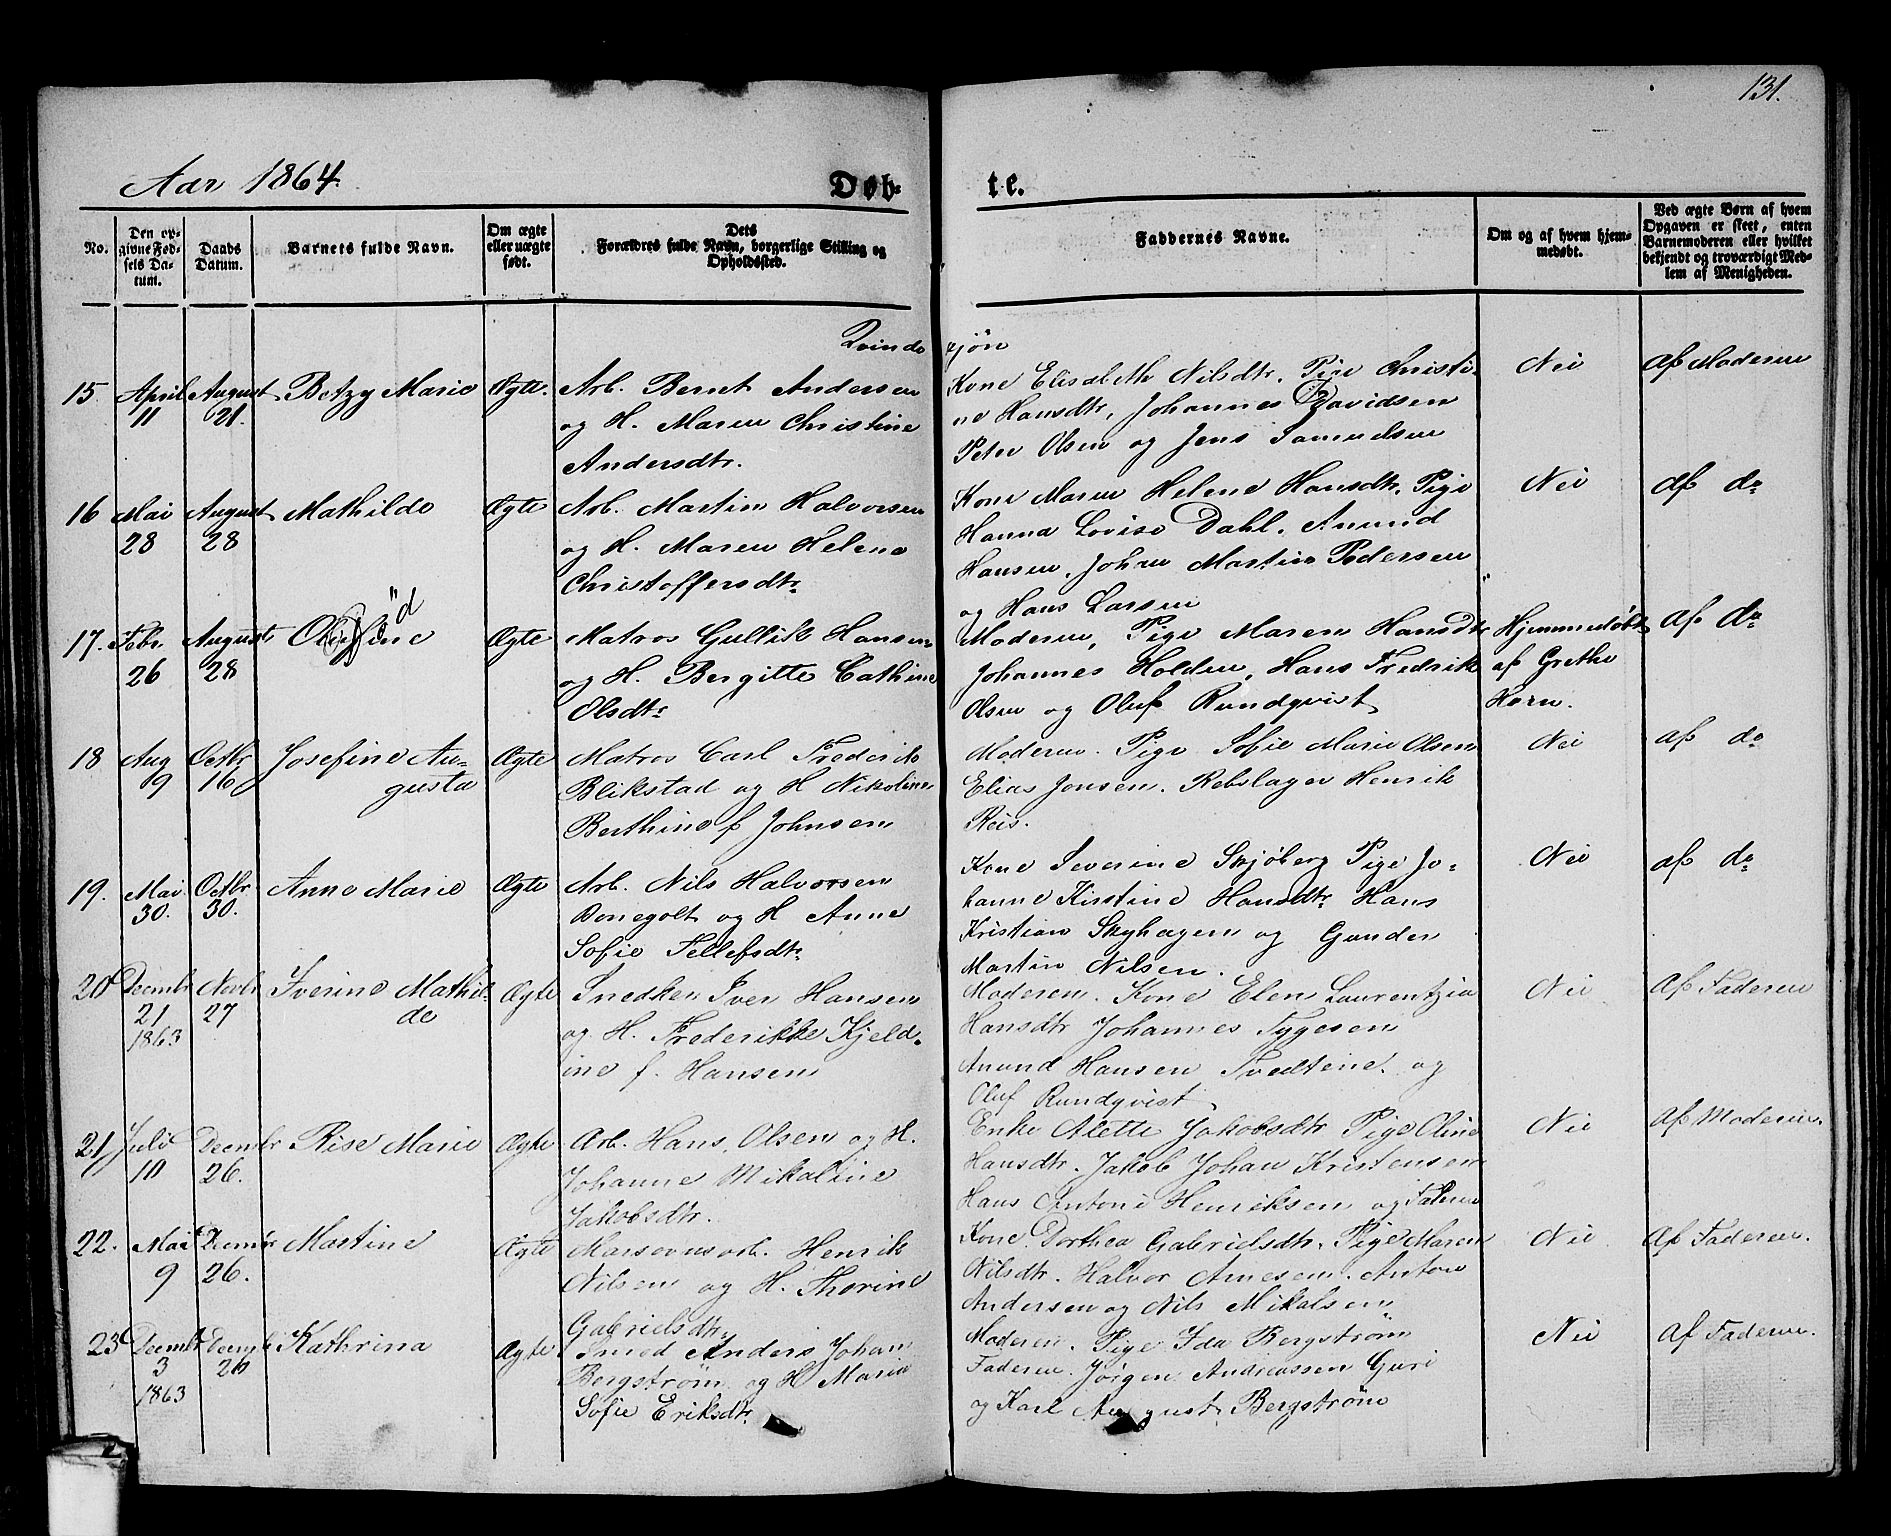 131.
Aar 1864.
Døb-
te.
No.
Den op-
givne Fød-
sels Da-
tum.
Daabs
Datum.
Barnets fulde Navn.
Om ægte
eller uægte
født.
Dets
Forældres fulde Navn, borgerlige Stilling og
Opholdssted.
Faddernes Navne.
Om og af hvem hjem-
medøbt.
Ved ægte Børn af hvem
Opgaven er skeet, enten
Barnemoderen eller hvilket
bekjendt og troværdigt Med-
lem af Menigheden.
Qvinde
kjøn
15. April 11 August 21. Betzy Marie Ægte.
Arb. Bernt Andersen
og H. Maren Christine
Andersdtr.
Kone Elisabeth Nilsdtr. Pige Christi-
ne Hansdtr, Johannes Davidsen
Peter Olsen og Jens Samuelsen
Nei
af Moderen
16 Mai 28 August 28 Mathilde Ægte
Arb. Martin Halvorsen
og H. Maren Helene
Christoffersdtr.
Kone Maren Helene Hansdtr. Pige
Hanna Lovise Dahl. Anund
Hansen, Johan Martin Pedersen
og Hans Larsen
Nei
af do
17. Febr. 26 August 28 Ægte
Matros Gullik Hansen
og H. Bergitte Cathine
Olsdtr.
Moderen, Pige Maren Hansdtr
Johannes Holden, Hans Fredrik
Olsen og Oluf Rundqvist
Hjemmedøbt
af Grethe
Horn.
af do
18 Aug 9 Octbr 16 Josefine Au-
gusta
Ægte
Matros Carl Frederik
Blikstad og H Nikoline
Berthine f Johnsen
Moderen. Pige Sofie Marie Olsen
Elias Jensen. Rebslager Henrik
Reis.
Nei
af do
19. Mai 30. Octbr 30. Anne Marie Ægte
Arb. Nils Halvorsen
Bonegolt og H Anne
Sofie Tellefsdtr.
Kone Severine Skjöberg Pige Jo-
hanne Kirstine Hansdtr. Hans
Kristian Skyhagen og Gunder
Martin Nilsen.
Nei
af do
20 Decmbr 21 1863 Novbr 27 Iverine Mathil-
de
Ægte
Snedker Iver Hansen
og H. Frederikke Kjeld-
ine f. Hansen
Moderen. Kone Elen Laurentzia
Hansdtr Johannes Tygesen
Anund Hansen Tvedtene. og
Oluf Rundqvist
Nei
af Faderen
21, Juli 10 Decmbr 26. Rise Marie Ægte
Arb. Hans Olsen og H.
Johanne Mikaline
Jakobsdtr.
Enke Alette Jakobsdtr Pige Oline
Hansdtr. Jakob Johan Kristensen
Hans Antoni Henriksen og Faderen
Nei
af Moderen
22. Mai 9 Decmbr 26. Martine Ægte
Henrik
Nilsen og H. Thorine
Gabrielsdtr.
Kone Dorthea Gabrielsdtr. Pige Maren
Nilsdtr. Halvor Arnesen. Anton
Andersen og Nils Mikalsen
Nei
Af Faderen.
23 Decmbr 3 1863 Decmbr 26 Kathrina Ægte
Smed Anders Johan
Bergstrøm og H Maria
Sofie Eriksdtr.
Moderen. Pige Ida Bergstrøm
Faderen. Jørgen Andreassen Guri
og Karl August Bergstrøm
Nei
Af Faderen.